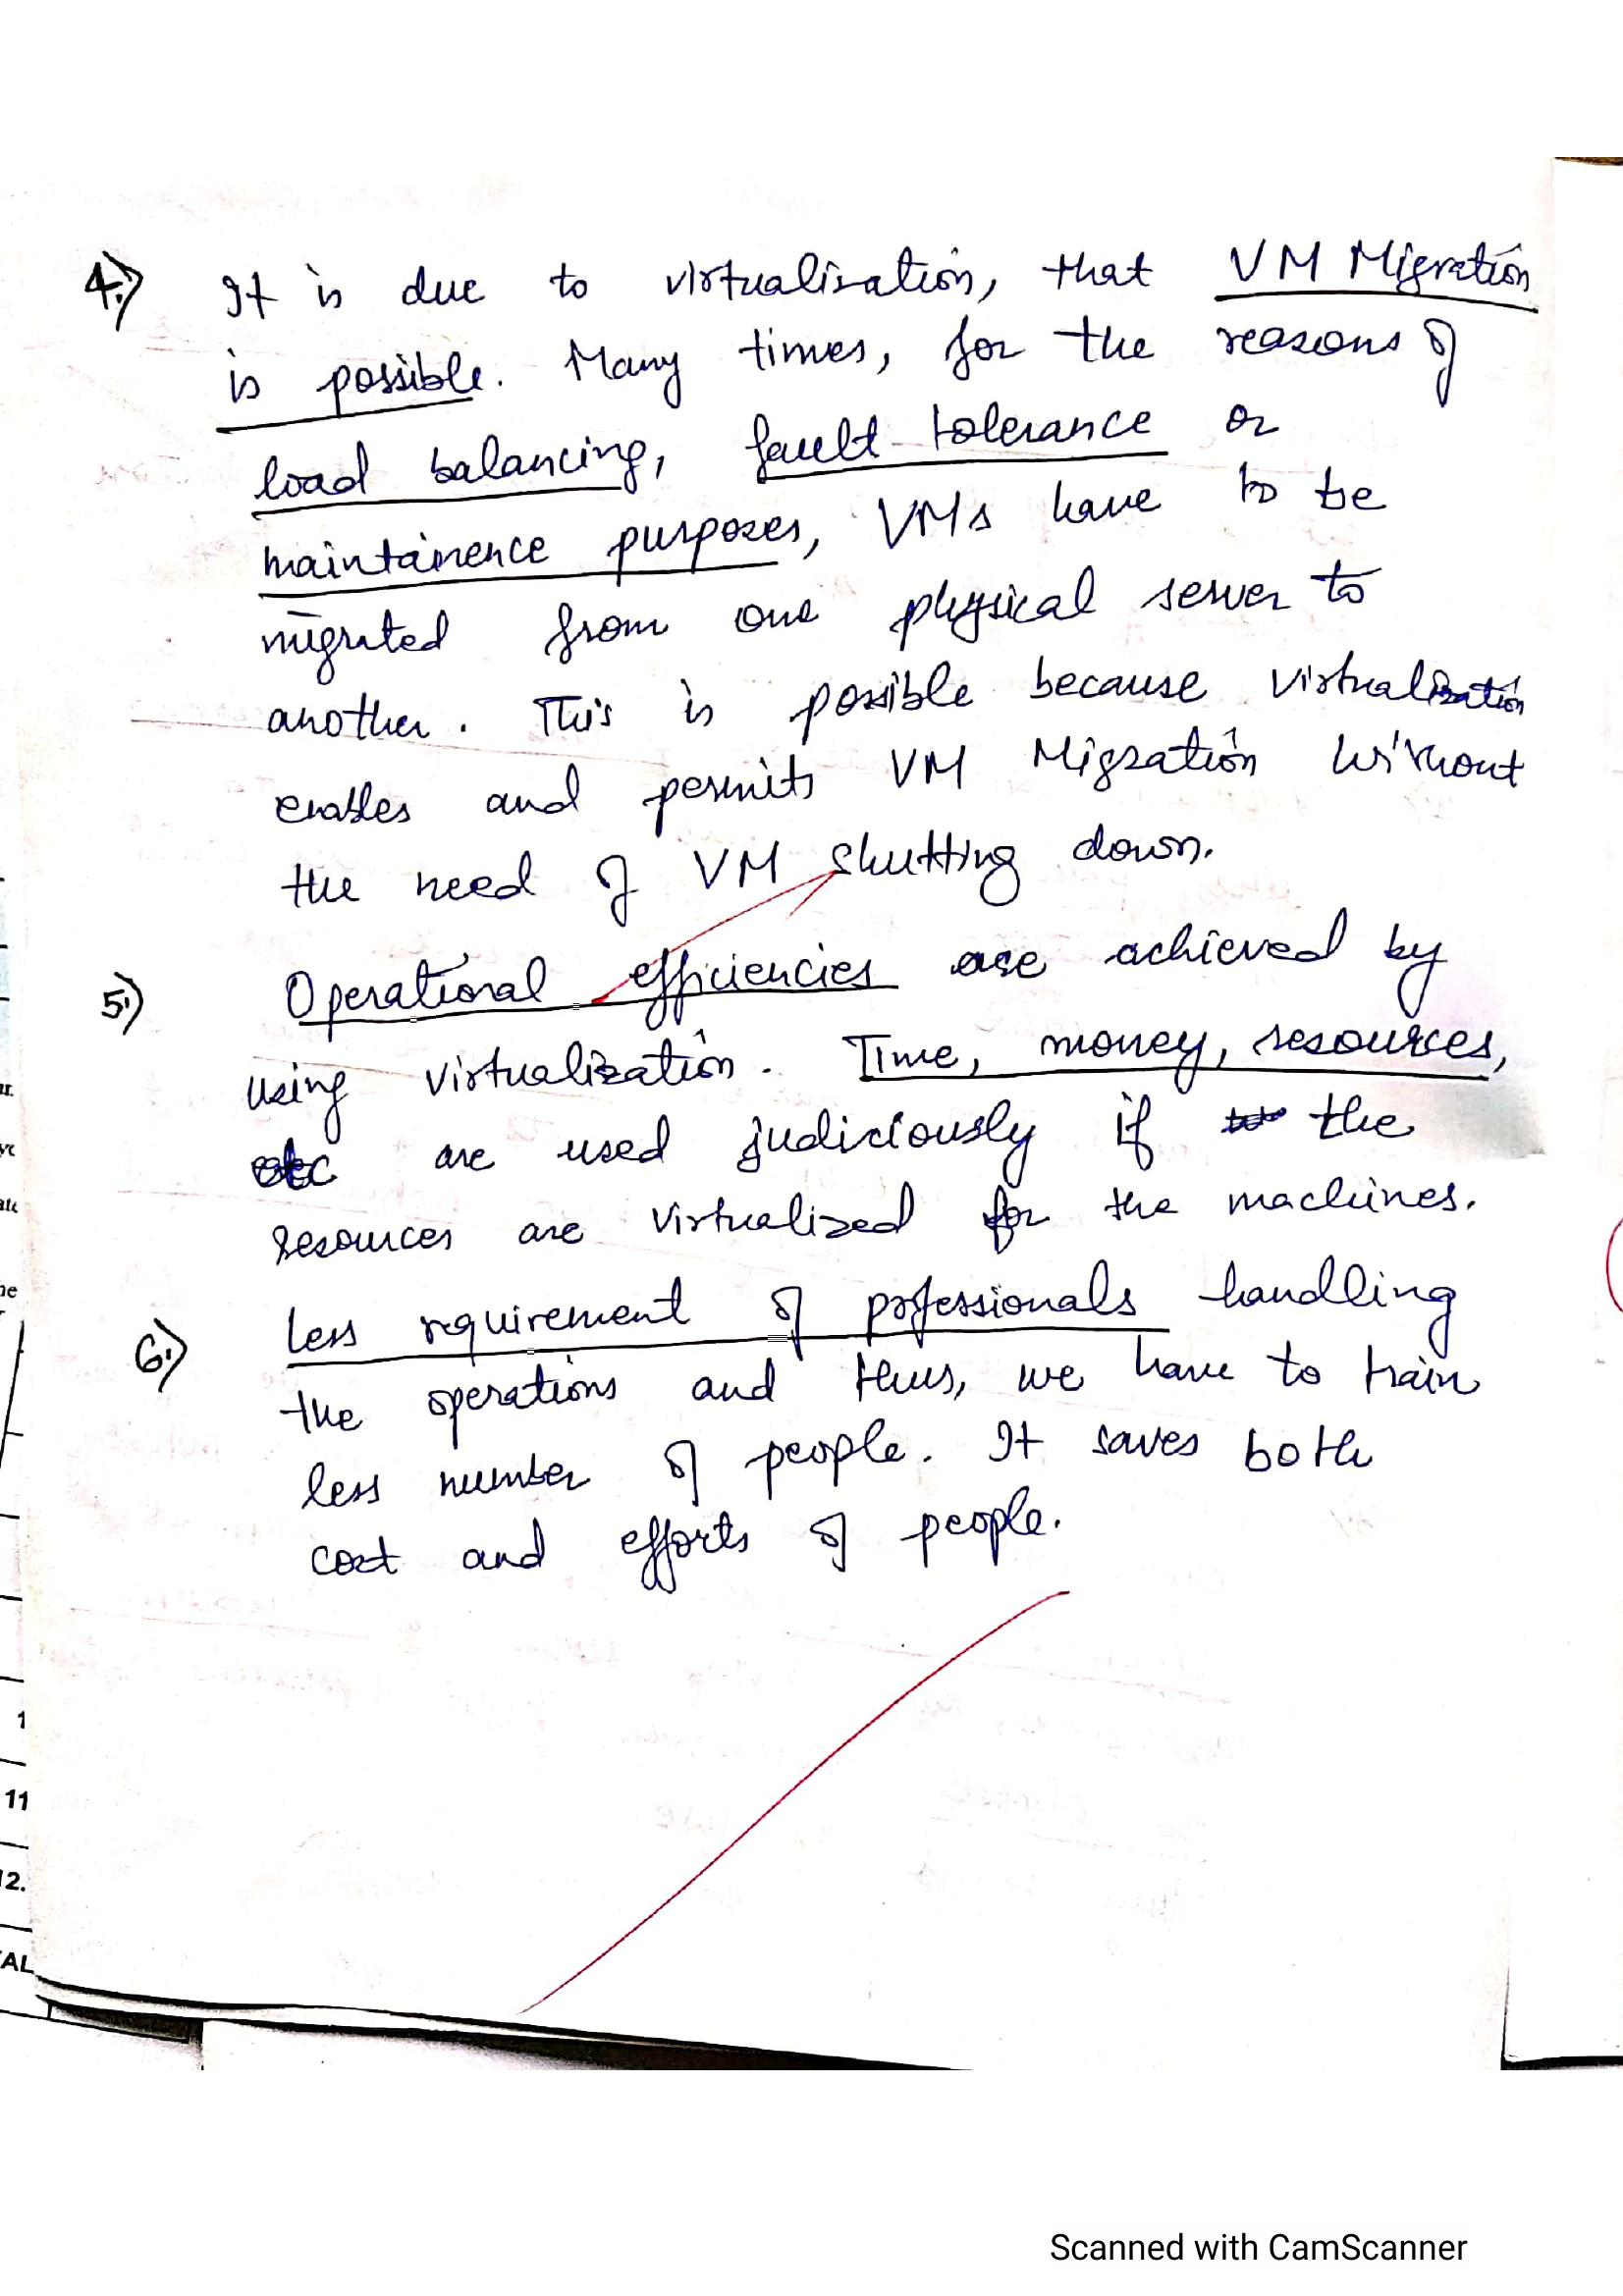 4.) It is due to virtualization, that VM Migration
is possible. Many times, for the reasons of
load balancing, fault tolerance or
maintainence purposes, VMs have to be
migrated from one physical server to
another. This is possible because virtualization
enables and permits VM Migration without
the need of VM shutting down.
5.) Operational efficiencies are achieved by
using virtualization. Time, money, resources,
etc are used judiciously if the
resources are virtualized for the machines.
6.) Less requirement of professionals handling
the operations and thus, we have to train
less number of people. It saves both
cost and efforts of people.
1
11
12.
Scanned with CamScanner